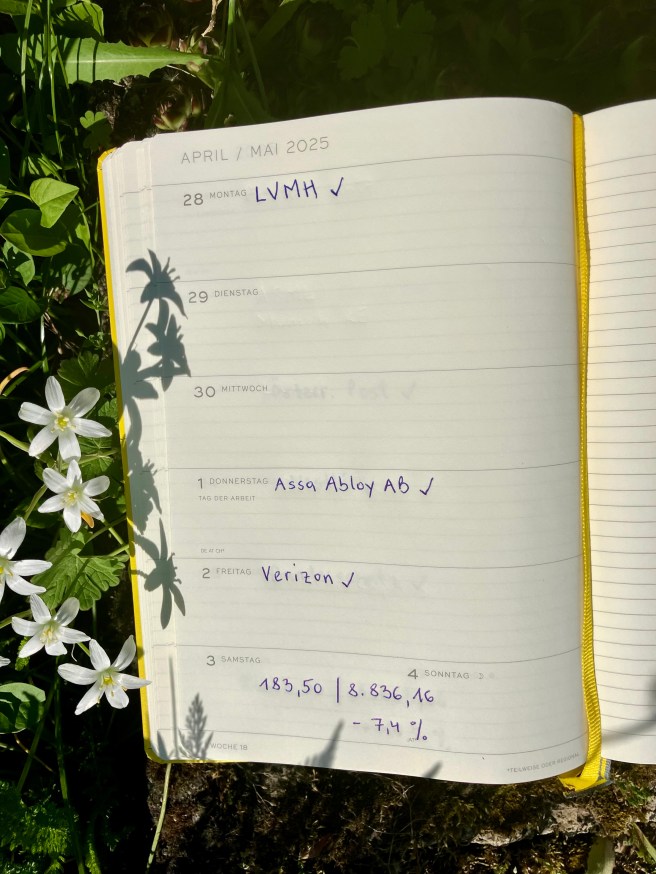 APRIL / MAI 2025
28 MONTAG LVMH ✓
29 DIENSTAG
30 MITTWOCH
1 DONNERSTAG Assa Abloy AB ✓
TAG DER ARBEIT
2 FREITAG Verizon ✓
3 SAMSTAG
4 SONNTAG
183,50 | 8.836,16
- 7,4 %
WOCHE 18